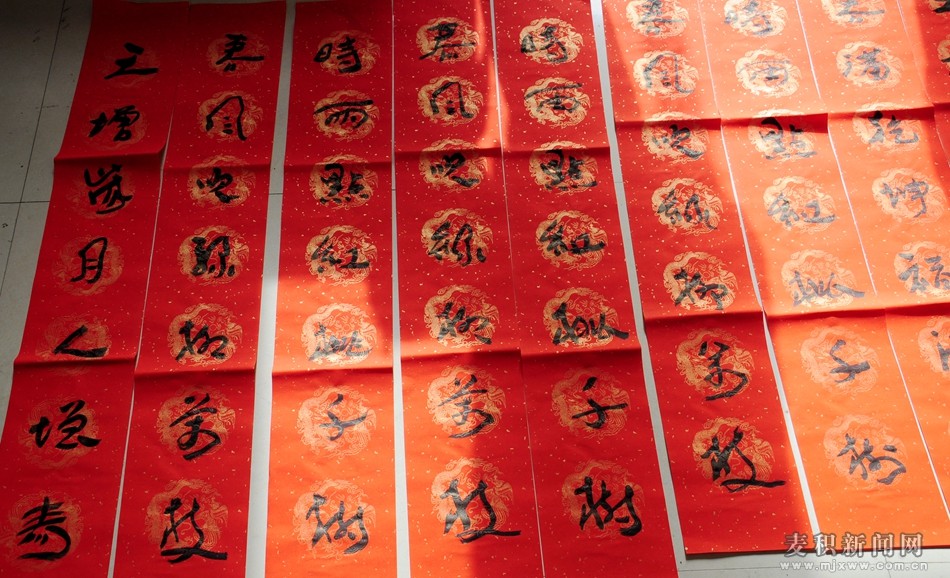 春滿乾坤福
時雨點紅桃千樹
春風吹綠柳萬枝
時雨點紅桃千樹
春風吹綠柳萬枝
時雨點紅桃千樹
春風吹綠柳萬枝
天增嵗月人增寿
麦积新闻网
www.mjxww.com.cn